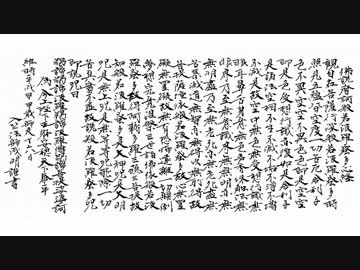 佛說摩訶般若波羅蜜多心經
觀自在菩薩行深般若波羅蜜多時
照見五蘊皆空度一切苦厄舍利子
色不異空空不異色色即是空空
即是色受想行識亦復如是舍利子
是諸法空相不生不滅不垢不淨不增
不減是故空中無色無受想行識無
眼耳鼻舌身意無色聲香味觸法無
眼界乃至無意識界無無明亦無
無明盡乃至無老死亦無老死盡無
苦集滅道無智亦無得以無所得故
菩提薩埵依般若波羅蜜多故心無罣
礙無罣礙故無有恐怖遠離一切顛倒
夢想究竟涅槃三世諸佛依般若波
羅蜜多故得阿耨多羅三藐三菩提故
知般若波羅蜜多是大神咒是大明
咒是無上咒是無等等咒能除一切
苦真實不虛故說般若波羅蜜多咒
即說咒曰
揭諦揭諦波羅揭諦波羅僧揭諦菩提薩婆訶
維時
成明謹書